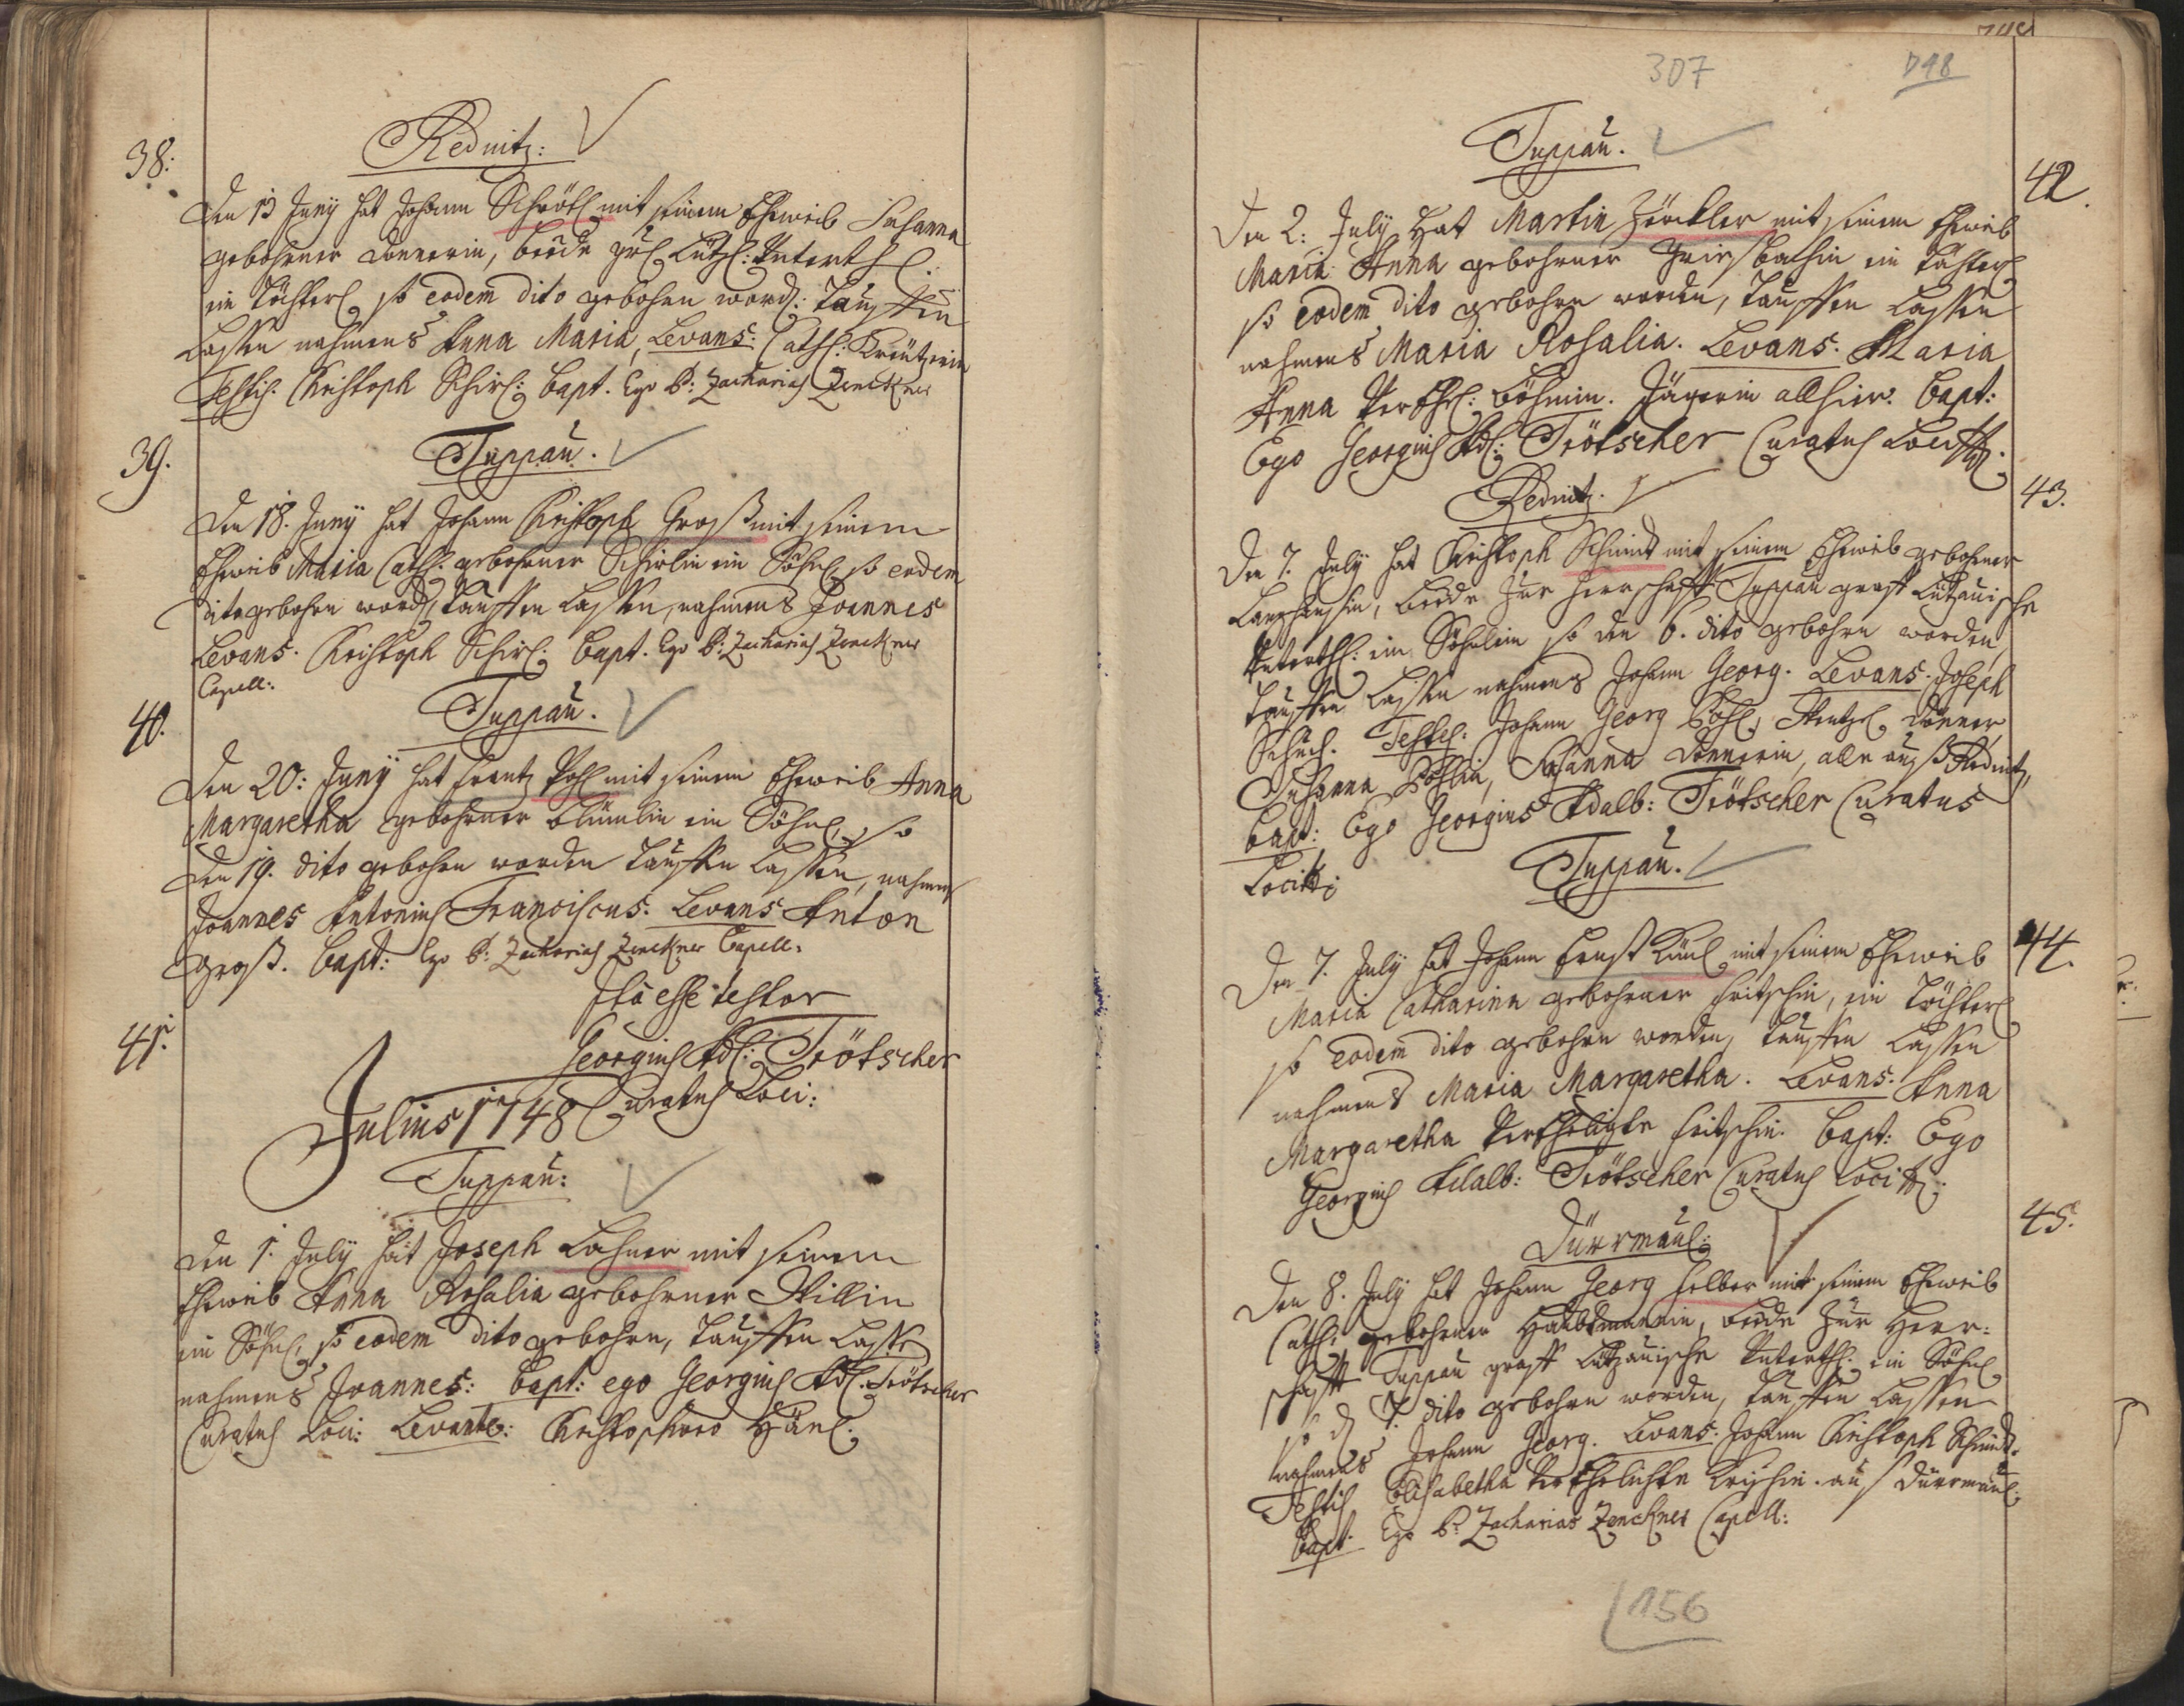 38:
Rednitz:
Den 13 Juny hat Johann Schrötl mit seinem Eheweib Susanna
gebohrner Donnerin, beede gräfl. Lützl: Unterth.
ein Töchterl so eodem dito gebohrn word: Tauffen
Lassen nahmens Anna Maria, Levans: Cath: Kreützerin
Testis. Christoph Schirl: bapt. Ego P: Zacharias Zenckner
39.
Tuppau.
Den 18. Juny hat Johann Christoph Groß mit seinem
Eheweib Maria Cath: gebohrner Schirlin ein Söhnl so eodem
dito gebohrn word, Tauffen Lassen, nahmens Joannes
Levans. Christoph Schirl: bapt. Ego P: Zacharias Zenckner
Capell:
40.
Tuppau.
Den 20: Juny hat Frantz Pohl mit seinem Eheweib Anna
Margaretha gebohrner Blümlin ein Söhnl, so
den 19. dito gebohrn worden Tauffen Lassen, nahmens
Joannes Antonius Franciscus. Levans Anton
Groß. bapt: Ego P: Zacharias Zenckner Capell:
Ita esse testor
Georgius Ad: Trötscher
Curatus Loci:
41.
Julius 1748
Tuppau:
Den 1. July hat Joseph Lahner mit seinem
Eheweib Anna Rosalia gebohrner Stillin
ein Söhnl, so eodem dito gebohrn, Tauffen Lassen
nahmens Joannes: bapt: ego Georgius Ad: Trötscher
Curatus Loci: Levante: Christophoro Hänl:
307
Tuppau.
42.
Den 2: July Hat Martin Zörckler mit seinem Eheweib
Maria Anna gebohrner Griesbachin ein Töchterl
so eodem dito gebohrn worden, Tauffen Lassen
nahmens Maria Rosalia. Levans. Maria
Anna Verehl: Böhmin. Jägerin allhier. bapt:
Ego Georgius Ad: Trötscher Curatus Loci
Rednitz.
43.
Den 7. July hat Christoph Schmidt mit seinem Eheweib gebohrner
beede zur Herrschafft Tuppau graff Lützauische
Unterth: ein Söhnlein so den 6. dito gebohrn worden,
Tauffen Lassen nahmens Johann Georg. Levans. Joseph
Testes: Johann Georg Pöhl, Wentzl Donner,
Susanna Pöhlin, Susanna Donnerin, alle auß Rednitz,
bapt: Ego Georgius Adalb: Trötscher Curatus
Loci
Tuppau.
44.
Den 7. July hat Johann Ernst Künl mit seinem Eheweib
Maria Catharina gebohrner Fritschin, ein Töchterl
so eodem dito gebohrn worden, Tauffen Lassen
nahmens Maria Margaretha. Levans: Anna
Margaretha Verehligte Fritschin. bapt: Ego
Georgius Adalb: Trötscher Curatus Loci
Dürrmaul:
45.
Den 8. July hat Johann Georg Felber mit seinem Eheweib
Cath: gebohrner Haubtmannin, beede zur Herr:
schafft Tuppau graff Lützauische Unterth: ein Söhnl
so d 7. dito gebohrn worden, Tauffen Lassen
nahmens Johann Georg. Levans: Johann Christoph Schmidt.
Testis Elisabetha Verehelichte auß Dürrmaul:
bapt. Ego P: Zacharias Zenckner Capell:
156